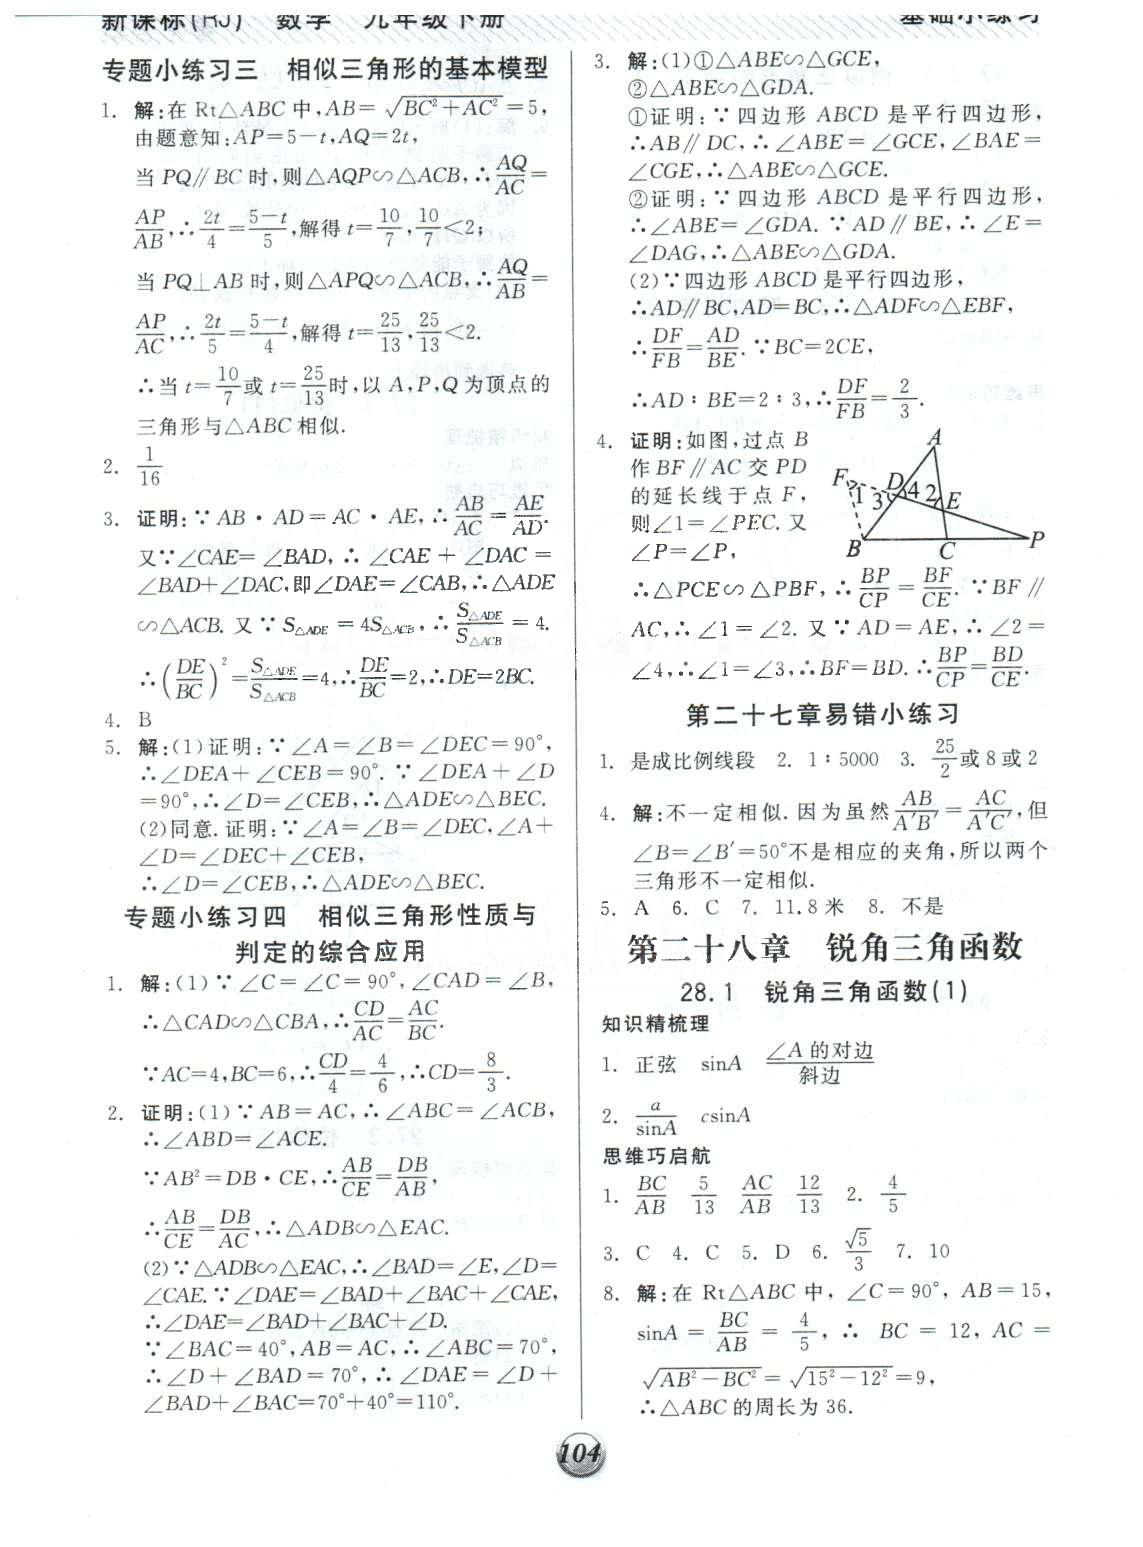 新课标(RJ) 数学 九年级下册
基础小练习
专题小练习三 相似三角形的基本模型
1. 解:在 Rt△ABC 中,AB= √(BC²+AC²) =5,
由题意知:AP=5-t,AQ=2t,
当 PQ∥BC 时,则△AQP∽△ACB,∴AQ/AC=
AP/AB,∴2t/4=(5-t)/5,解得 t=10/7,10/7<2;
当 PQ⊥AB 时,则△APQ∽△ACB,∴AQ/AB=
AP/AC,∴2t/5=(5-t)/4,解得 t=25/13,25/13<2.
∴当 t=10/7或 t=25/13时,以 A,P,Q 为顶点的
三角形与△ABC 相似.
2. 1/16
3. 证明:∵AB·AD=AC·AE,∴AB/AC=AE/AD.
又∵∠CAE=∠BAD,∴∠CAE+∠DAC=
∠BAD+∠DAC,即∠DAE=∠CAB,∴△ADE
∽△ACB. 又∵S△ADE=4S△ACB,∴S△ADE/S△ACB=4.
∴(DE/BC)²=S△ADE/S△ACB=4,∴DE/BC=2,∴DE=2BC.
4. B
5. 解:(1)证明:∵∠A=∠B=∠DEC=90°,
∴∠DEA+∠CEB=90°. ∵∠DEA+∠D
=90°,∴∠D=∠CEB,∴△ADE∽△BEC.
(2)同意.证明:∵∠A=∠B=∠DEC,∠A+
∠D=∠DEC+∠CEB,
∴∠D=∠CEB,∴△ADE∽△BEC.
专题小练习四 相似三角形性质与
判定的综合应用
1. 解:(1)∵∠C=∠C=90°,∠CAD=∠B,
∴△CAD∽△CBA,∴CD/AC=AC/BC.
∵AC=4,BC=6,∴CD/4=4/6,∴CD=8/3.
2. 证明:(1)∵AB=AC,∴∠ABC=∠ACB,
∴∠ABD=∠ACE.
∵AB²=DB·CE,∴AB/CE=DB/AB,
∴AB/CE=DB/AC,∴△ADB∽△EAC.
(2)∵△ADB∽△EAC,∴∠BAD=∠E,∠D=
∠CAE. ∵∠DAE=∠BAD+∠BAC+∠CAE,
∴∠DAE=∠BAD+∠BAC+∠D.
∵∠BAC=40°,AB=AC,∴∠ABC=70°,
∴∠D+∠BAD=70°,∴∠DAE=∠D+
∠BAD+∠BAC=70°+40°=110°.
3. 解:(1)①△ABE∽△GCE,
②△ABE∽△GDA.
①证明:∵四边形 ABCD 是平行四边形,
∴AB∥DC,∴∠ABE=∠GCE,∠BAE=
∠CGE,∴△ABE∽△GCE.
②证明:∵四边形 ABCD 是平行四边形,
∴∠ABE=∠GDA. ∵AD∥BE,∴∠E=
∠DAG,∴△ABE∽△GDA.
(2)∵四边形 ABCD 是平行四边形,
∴AD∥BC,AD=BC,∴△ADF∽△EBF,
∴DF/FB=AD/BE. ∵BC=2CE,
∴AD∶BE=2∶3,∴DF/FB=2/3.
4. 证明:如图,过点 B
作 BF∥AC 交 PD
的延长线于点 F,
则∠1=∠PEC. 又
∠P=∠P,
A
F D E
1 3 4 2
B C P
∴△PCE∽△PBF,∴BP/CP=BF/CE. ∵BF∥
AC,∴∠1=∠2. 又∵AD=AE,∴∠2=
∠4,∴∠1=∠3,∴BF=BD. ∴BP/CP=BD/CE.
第二十七章易错小练习
1. 是成比例线段 2. 1∶5000 3. 25/2或 8 或 2
4. 解:不一定相似. 因为虽然AB/A′B′=AC/A′C′,但
∠B=∠B′=50°不是相应的夹角,所以两个
三角形不一定相似.
5. A 6. C 7. 11.8 米 8. 不是
第二十八章 锐角三角函数
28.1 锐角三角函数(1)
知识精梳理
1. 正弦 sinA ∠A 的对边/斜边
2. a/sinA csinA
思维巧启航
1. BC/AB 5/13 AC/AB 12/13 2. 4/5
3. C 4. C 5. D 6. √5/3 7. 10
8. 解:在 Rt△ABC 中,∠C=90°,AB=15,
sinA=BC/AB=4/5,∴BC=12,AC=
√(AB²-BC²)=√(15²-12²)=9,
∴△ABC 的周长为 36.
104